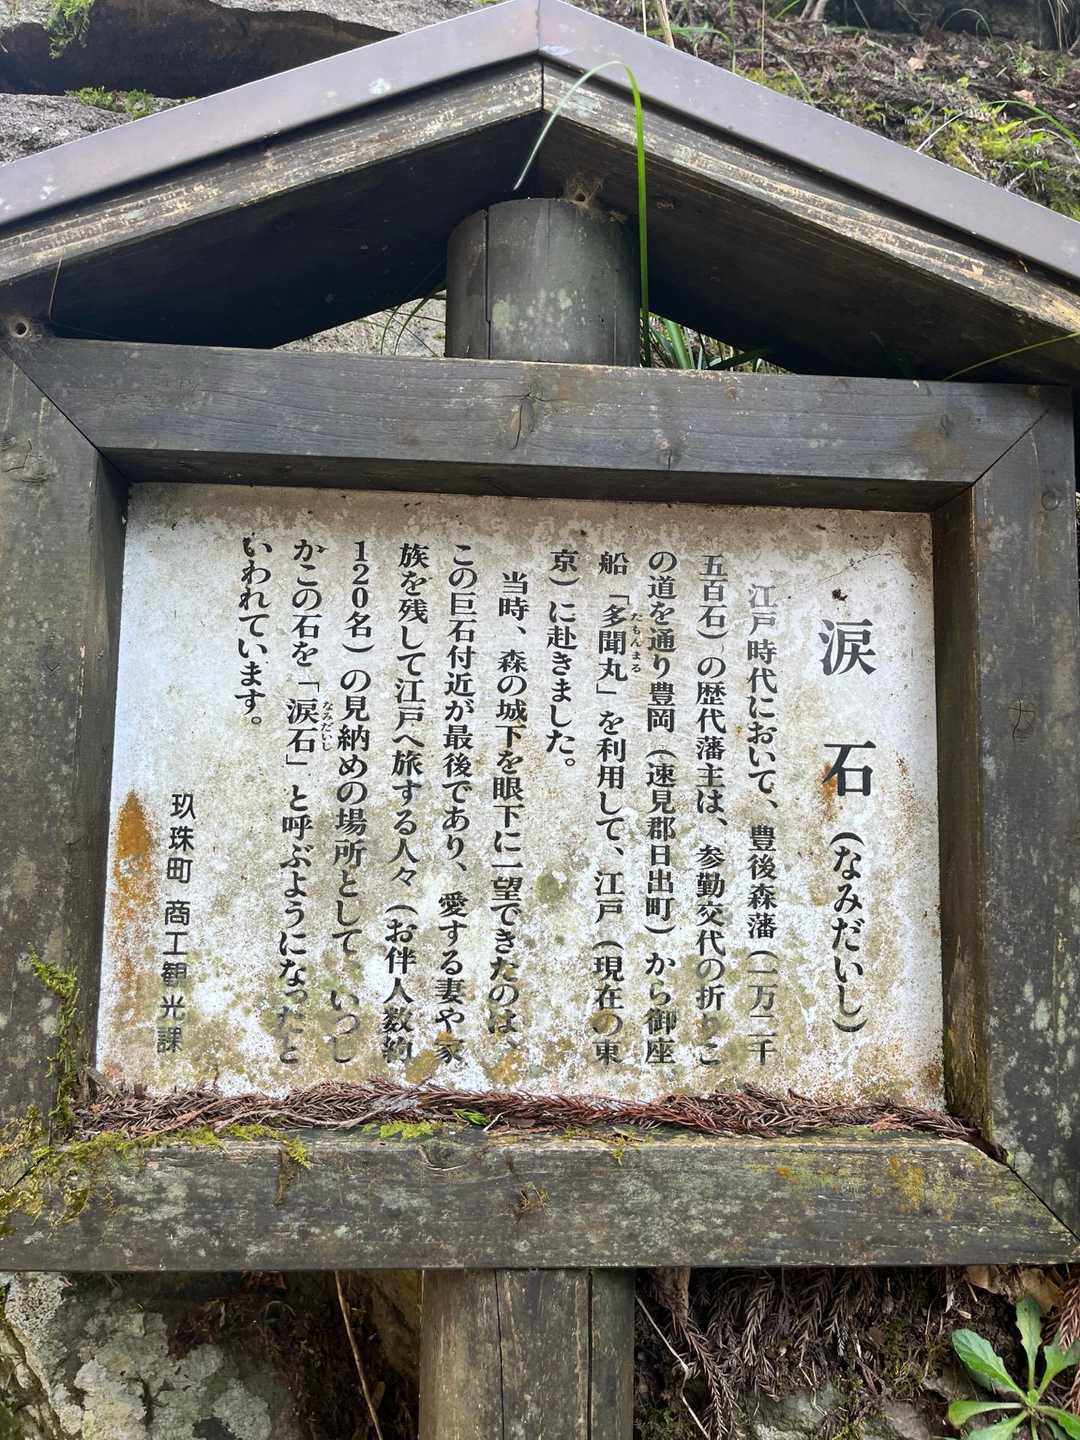 涙石（なみだいし）
江戸時代において、豊後森藩（一万二千
五百石）の歴代藩主は、参勤交代の折りこ
の道を通り豊岡（速見郡日出町）から御座
船「多聞丸」を利用して、江戸（現在の東
たもんまる
京）に赴きました。
当時、森の城下を眼下に一望できたのは、
この巨石付近が最後であり、愛する妻や家
族を残して江戸へ旅する人々（お伴人数約
120名）の見納めの場所として、いつし
かこの石を「涙石」と呼ぶようになったと
なみだいし
いわれています。
玖珠町 商工観光課